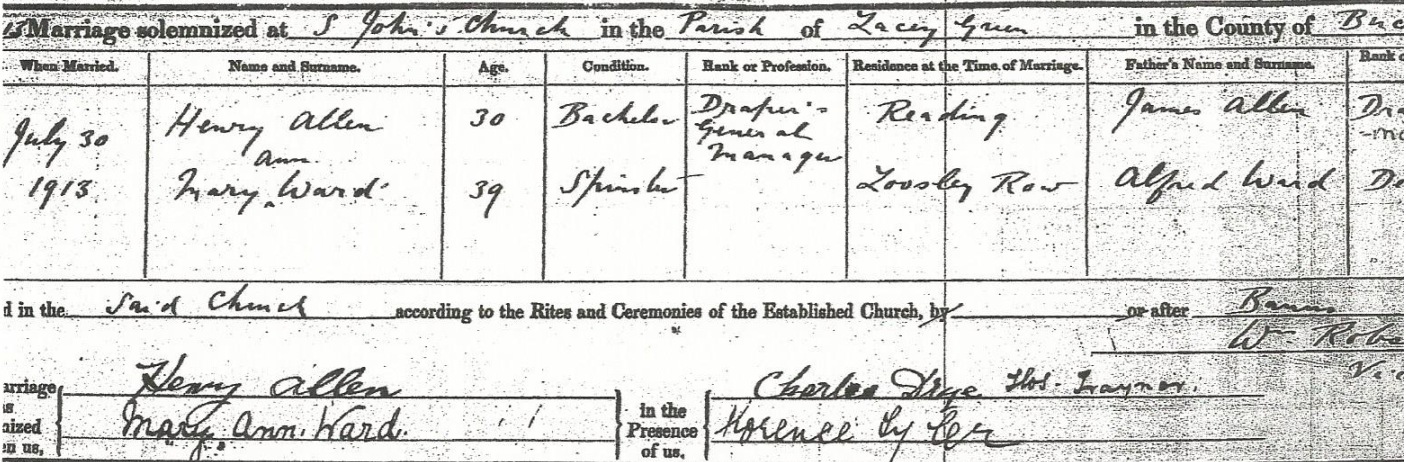 Marriage solemnized at S John's Church in the Parish of Lacey Green in the County of Buc
When Married. Name and Surname. Age. Condition. Rank or Profession. Residence at the Time of Marriage. Father's Name and Surname. Rank o
July 30 Henry Allen 30 Bachelor Draper's General Manager Reading James Allen Dra
1913 Mary Ann Ward 39 Spinster Loosley Row Alfred Ward
d in the Said Church according to the Rites and Ceremonies of the Established Church, by or after Banns
Wm Roba
arriage Henry Allen Charles Thos.
as
nized Mary Ann Ward. in the Presence of us, Florence Tyler
en us,